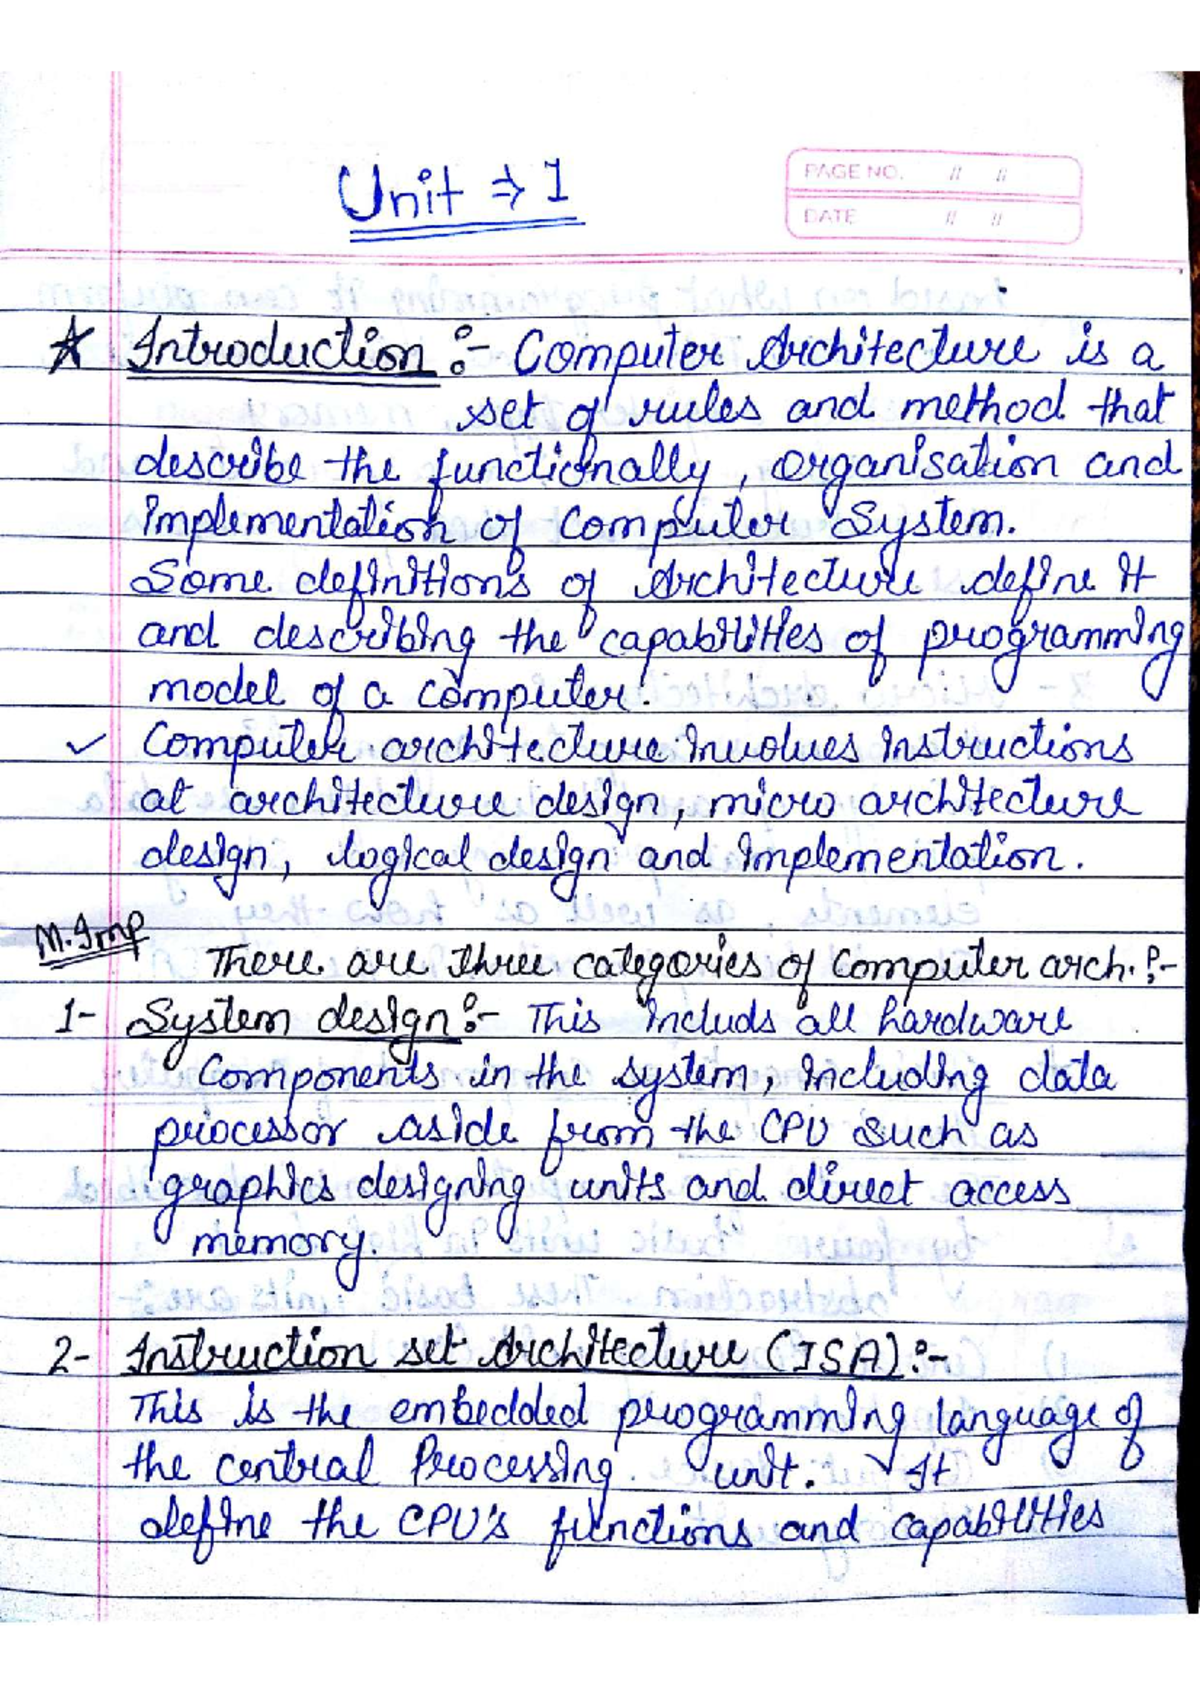 Unit ⇒ 1
PAGE NO. // //
DATE // //
☆ Introduction :- Computer Architecture is a
set of rules and method that
describe the functionally, organisation and
implementation of computer System.
Some definitions of Architecture define it
and describing the capabilities of programming
model of a computer.
✓ Computer architecture involves instructions
at architecture design, micro architecture
design, logical design and implementation.
M.Imp
There are three categories of computer arch. :-
1- System design :- This includs all hardware
Components in the system, including data
processor aside from the CPU such as
graphics designing units and direct access
memory.
2- Instruction set Architecture (ISA) :-
This is the embedded programming language of
the central Processing unit. It
define the CPU's functions and capabilities